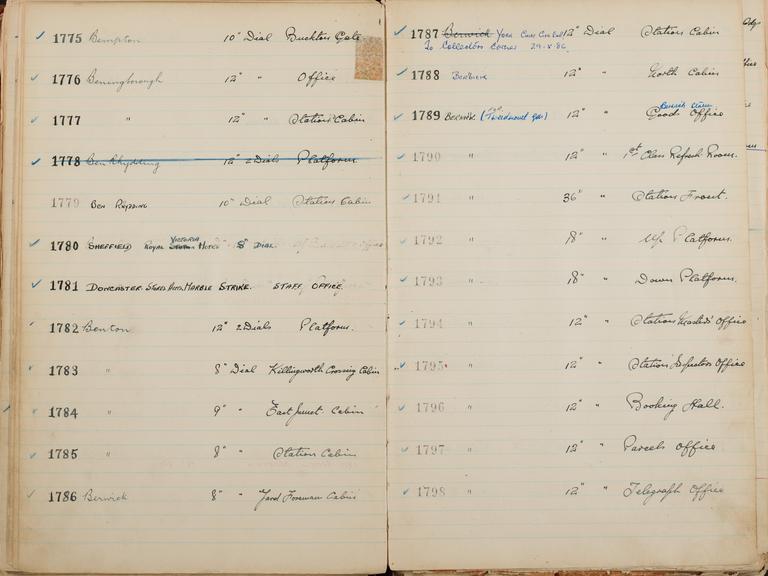 1775 Bempton 10" Dial Buckton Gate
1776 Beningborough 12" " Office
1777 " 12" " Station Cabin
1778 Ben Rhydding 12" 2 Dials Platform.
1779 Ben Rhydding 10" Dial Station Cabin
1780 Sheffield Royal Victoria Hotel 8" Dial.
1781 Doncaster. Marble Strike. Staff Office
1782 Benton 12" 2 Dials Platform.
1783 " 8" Dial Killingworth Crossing Cabin
1784 " 9" " East Junct. Cabin
1785 " 8" " Station Cabin
1786 Berwick 8" " Yard Foreman Cabin
1787 Berwick York 12" Dial Station Cabin
To Collectors Corner 29-8-86
1788 Berwick 12" " North Cabin
1789 Berwick (Tweedmouth 12" " Goods Office
1790 " 12" " 1st Class Refresh Room.
1791 " 36" " Station Front.
1792 " 18" " Up Platform.
1793 " 18" " Down Platform.
1794 " 12" " Station Masters Office
1795 " 12" " Station Inspectors Office
1796 " 12" " Booking Hall.
1797 " 12" " Parcels Office
1798 " 12" " Telegraph Office